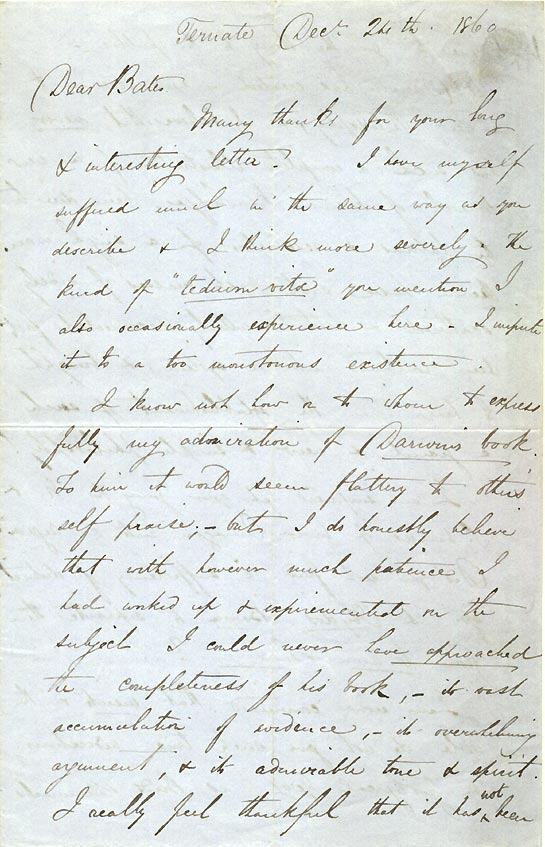 Ternate Decr. 24th. 1860
Dear Bates
Many thanks for your long
& interesting letter. I have myself
suffered much in the same way as you
describe & I think more severely. The
kind of "tedium vitæ" you mention I
also occasionally experience here – I impute
it to a too monotonous existence.
I know not how or to whom to express
fully my admiration of Darwin's book.
To him it would seem flattery to others
self praise; – but I do honestly believe
that with however much patience I
had worked up & experimented on the
subject I could never have approached
the completeness of his book, – its vast
accumulation of evidence, – its overwhelming
argument, & its admirable tone & spirit.
I really feel thankful that it has not been